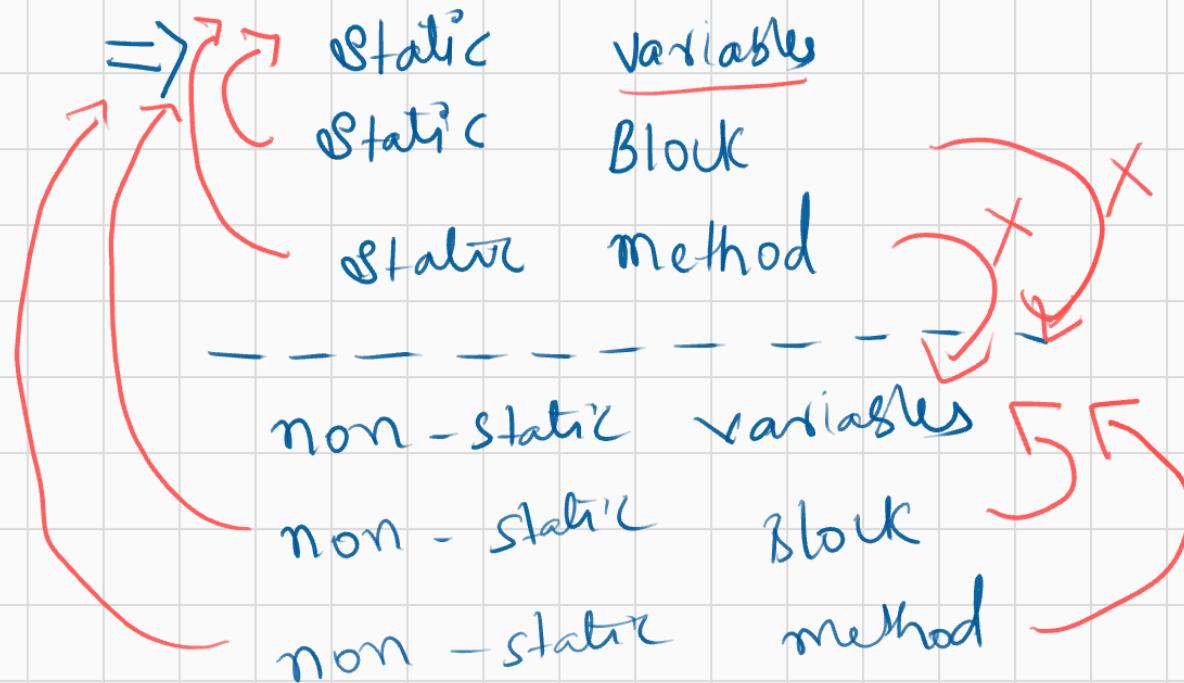 => static variables
static Block
static method
non-static variables
non-static Block
non-static method